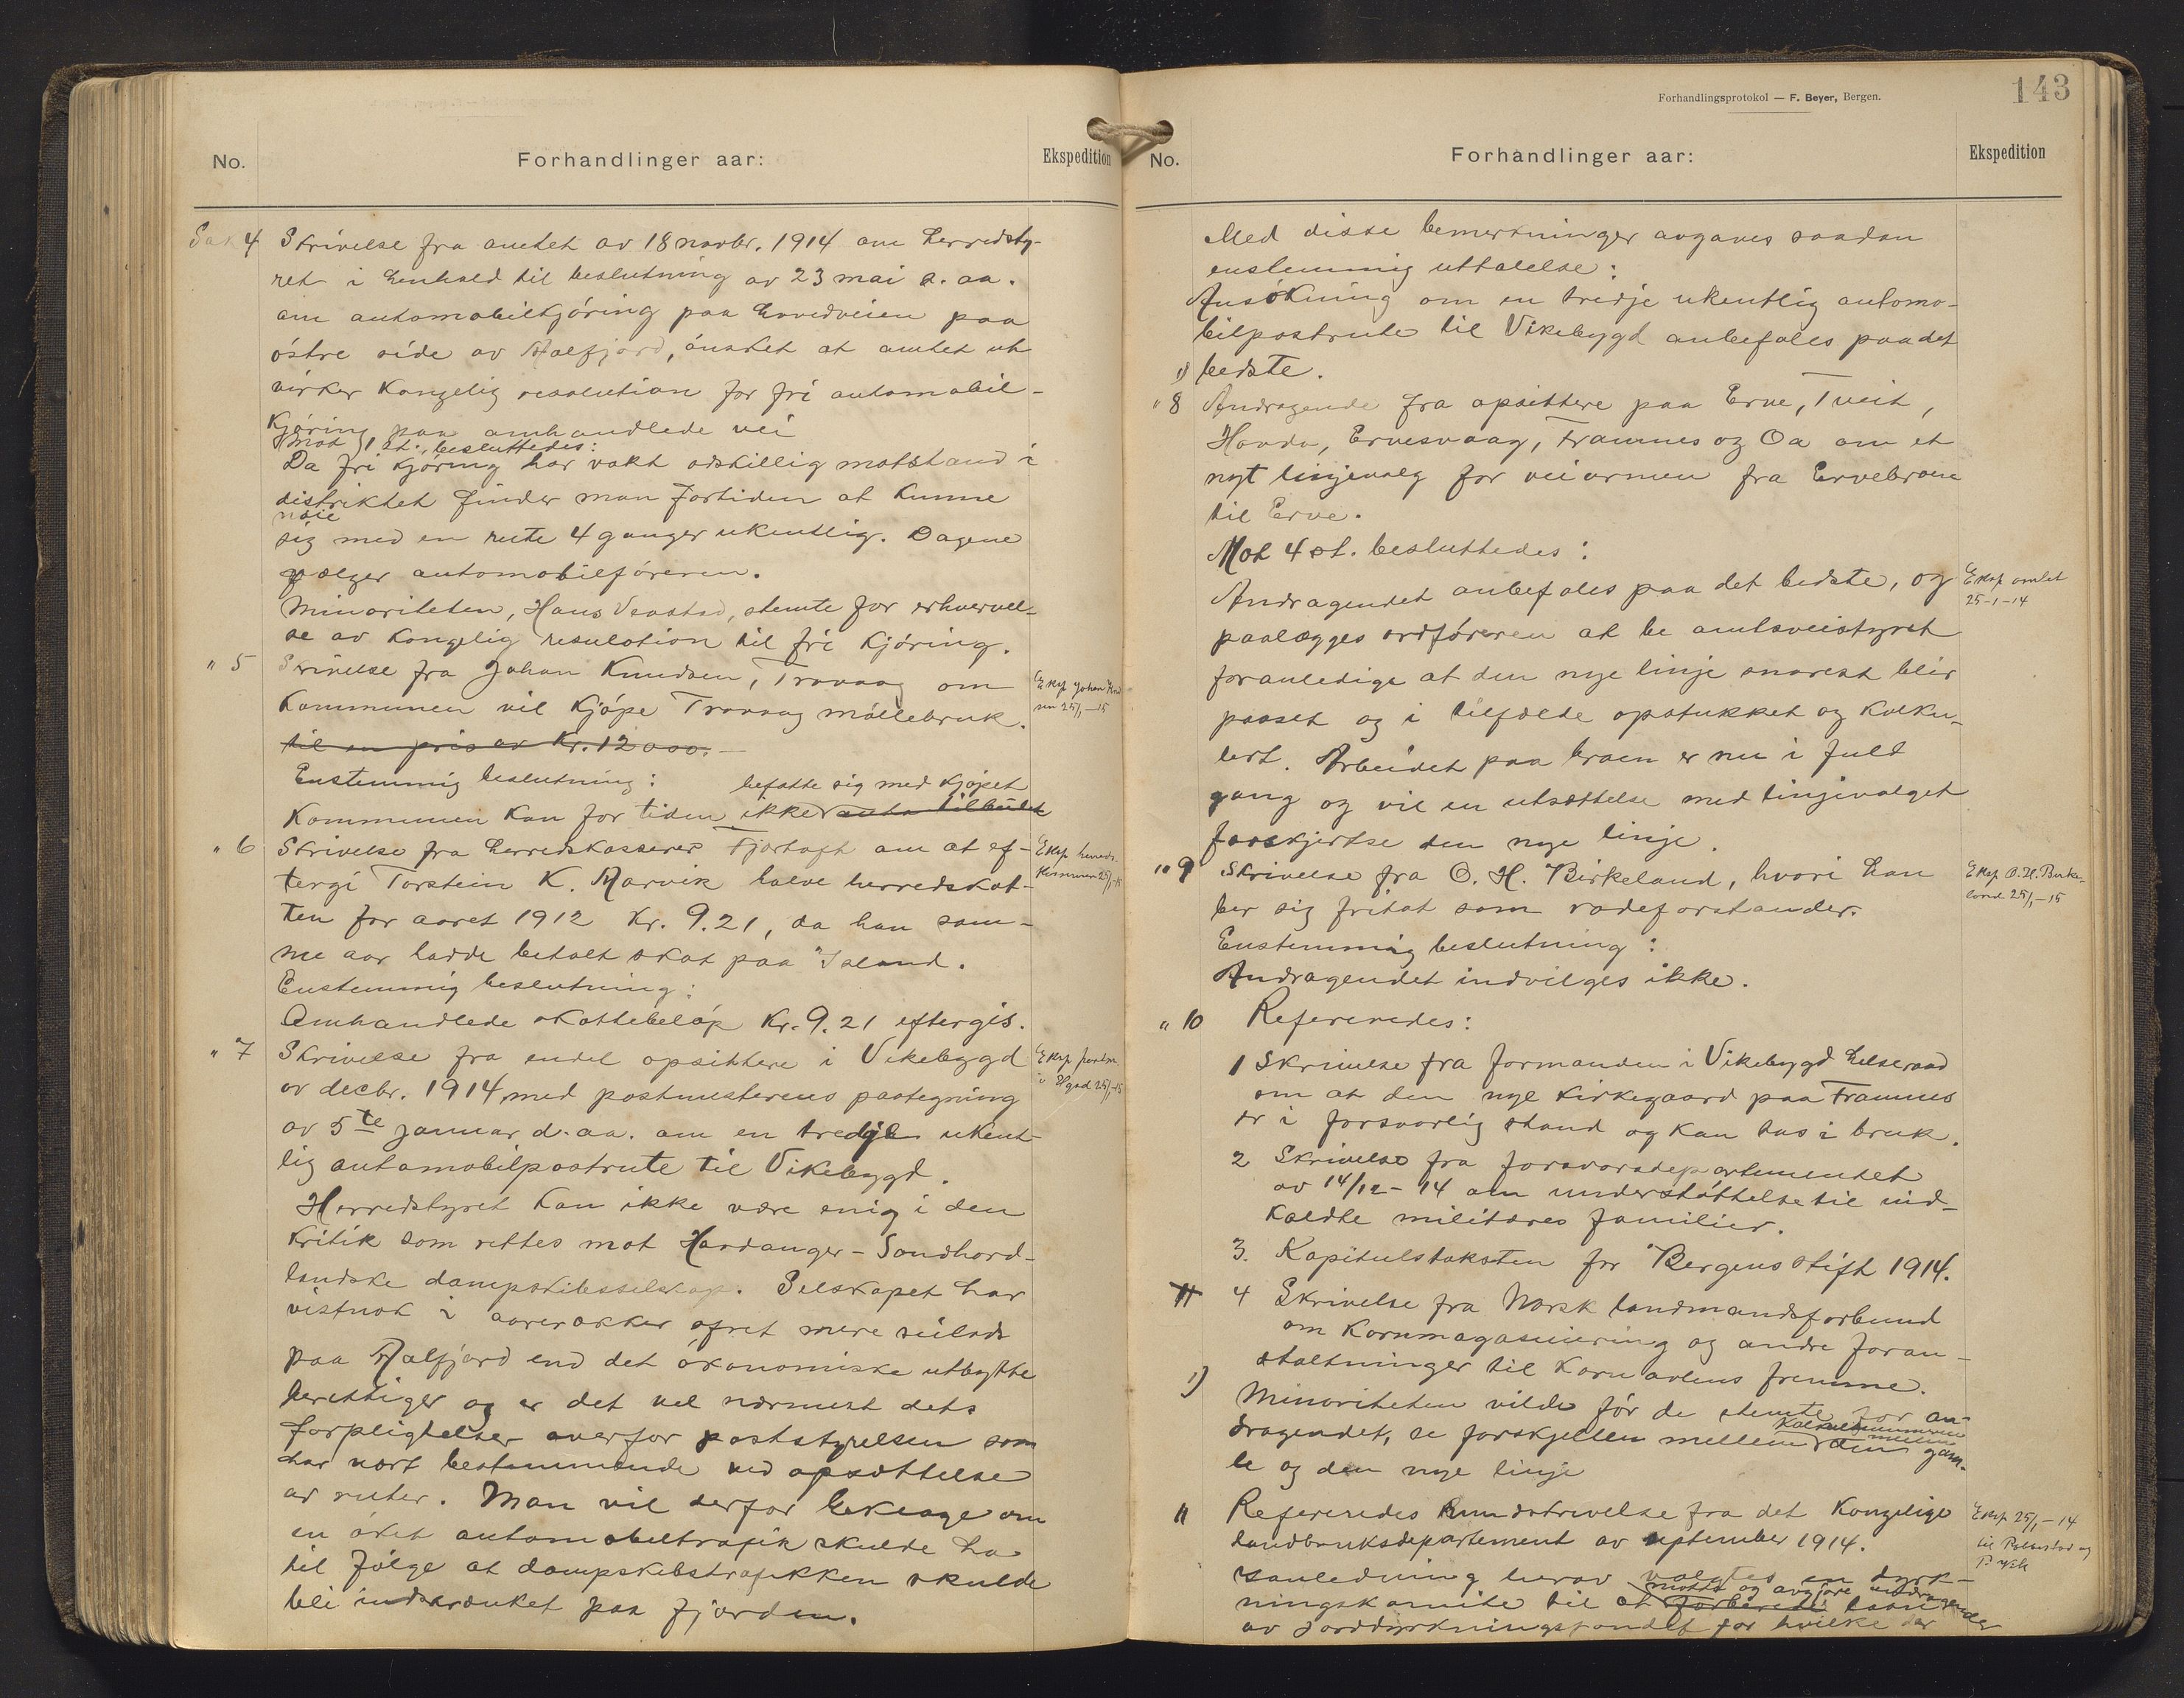 No.
Forhandlinger aar:
Ekspedition
Sak 4 Skrivelse fra amtet av 18 novbr. 1914 om herredsty-
ret i henhold til beslutning av 23 mai s. aa.
om automobilkjöring paa hovedveien paa
östre side av Aalfjord, önsket at amtet ut
virker kongelig resolution for fri automobil-
kjöring paa omhandlede vei
Mot 1 st. besluttedes:
Da fri kjöring har vakt adskillig motstand i
distriktet finder man fortiden at kunne
nöie
sig med en rute 4 ganger ukentlig. Dagene
vælger automobilföreren.
Minoriteten, Hans Veastad, stemte for erhvervel-
se av kongelig resulotion til fri kjöring.
" 5 Skrivelse fra Johan Knudsen, Trovaag om
Eksp Johan Knud
sen 25/1-15
kommunen vil kjöpe Trovaag möllebruk.
til en pris av kr. 12000.-
Enstemmig beslutning:
befatte sig med kjöpet
Kommunen kan for tiden ikke
" 6 Skrivelse fra herredskasserer Fjortoft om at ef-
Eksp herreds-
kasserer 25/1-15
tergi Torstein K. Aarvik halve herredskat-
ten for aaret 1912 kr. 9.21, da han sam-
me aar hadde betalt skat paa Island.
Enstemmig beslutning:
Omhandlede skattebelöp kr. 9.21 eftergis.
" 7 Skrivelse fra endel opsittere i Vikebygd
av decbr. 1914, med postmesterens paategning
av 5te januar d. aa. om en tredje ukent-
lig automobilpostrute til Vikebygd.
Herredstyret kan ikke være enig i den
kritik som rettes mot Hardanger-Söndhord-
landske dampskibsselskap. Selskapet har
vistnok i aarrækker ofret mere seilads
paa Aalfjord end det ökonomiske utbytte
berettiger og er det vel nærmest dets
forpligtelser overfor poststyrelsen som
har vært bestemmende ved opsættelse
av ruter. Man vil derfor beklage om
en öket automobiltrafik skulde ha
til fölge at dampskibstrafikken skulde
bli indskrænket paa fjorden.
Forhandlingsprotokol — F. Beyer, Bergen.
143
No.
Forhandlinger aar:
Ekspedition
Med disse bemerkninger avgaves saadan
enstemmig uttalelse:
Ansökning om en tredje ukentlig automo-
bilpostrute til Vikebygd anbefales paa det
1) bedste.
" 8 Andragende fra opsittere paa Erve, Tveit,
Hovda, Ervesvaag, Framnes og Oa om et
nyt linjevalg for veiarmen fra Ervebroen
til Erve.
Mot 4 st. besluttedes:
Andragendet anbefales paa det bedste, og
Eksp amtet
25-1-14
paalægges ordföreren at be amtsveistyret
foranledige at den nye linje snarest blir
paaset og i tilfælde opstukket og kalku-
lert. Arbeidet paa broen er nu i fuld
gang og vil en utsættelse med linjevalget
forskjertse den nye linje.
" 9 Skrivelse fra O. H. Birkeland, hvori han
Eksp O.H. Birke-
land 25/1-15
ber sig fritat som rodeforstander.
Enstemmig beslutning:
Andragendet indvilges ikke.
" 10 Refereredes:
1 Skrivelse fra formanden i Vikebygd helseraad
om at den nye kirkegaard paa Framnes
er i forsvarlig stand og kan tas i bruk.
2 Skrivelse fra forsvarsdepartementet
av 14/12-14 om understöttelse til ind-
kaldte militæres familier.
3. Kapitulstaksten for Bergens stift 1914.
11 4 Skrivelse fra Norsk landmandsforbund
om kornmagasinering og andre foran-
staltninger til kornavlens fremme.
1) Minoriteten vilde för de stemte for an-
dragendet, se forskjellen mellem den gam-
le og den nye linje
11 Refereredes Rundskrivelse fra det kongelige
Eksp 25/1-14
landbruksdepartement av september 1914.
I anledning herav valgtes en dyrk-
motta og avgjöre andragender
ningskomite til at forberede laan
av jorddyrkningsfondet for hvilke der